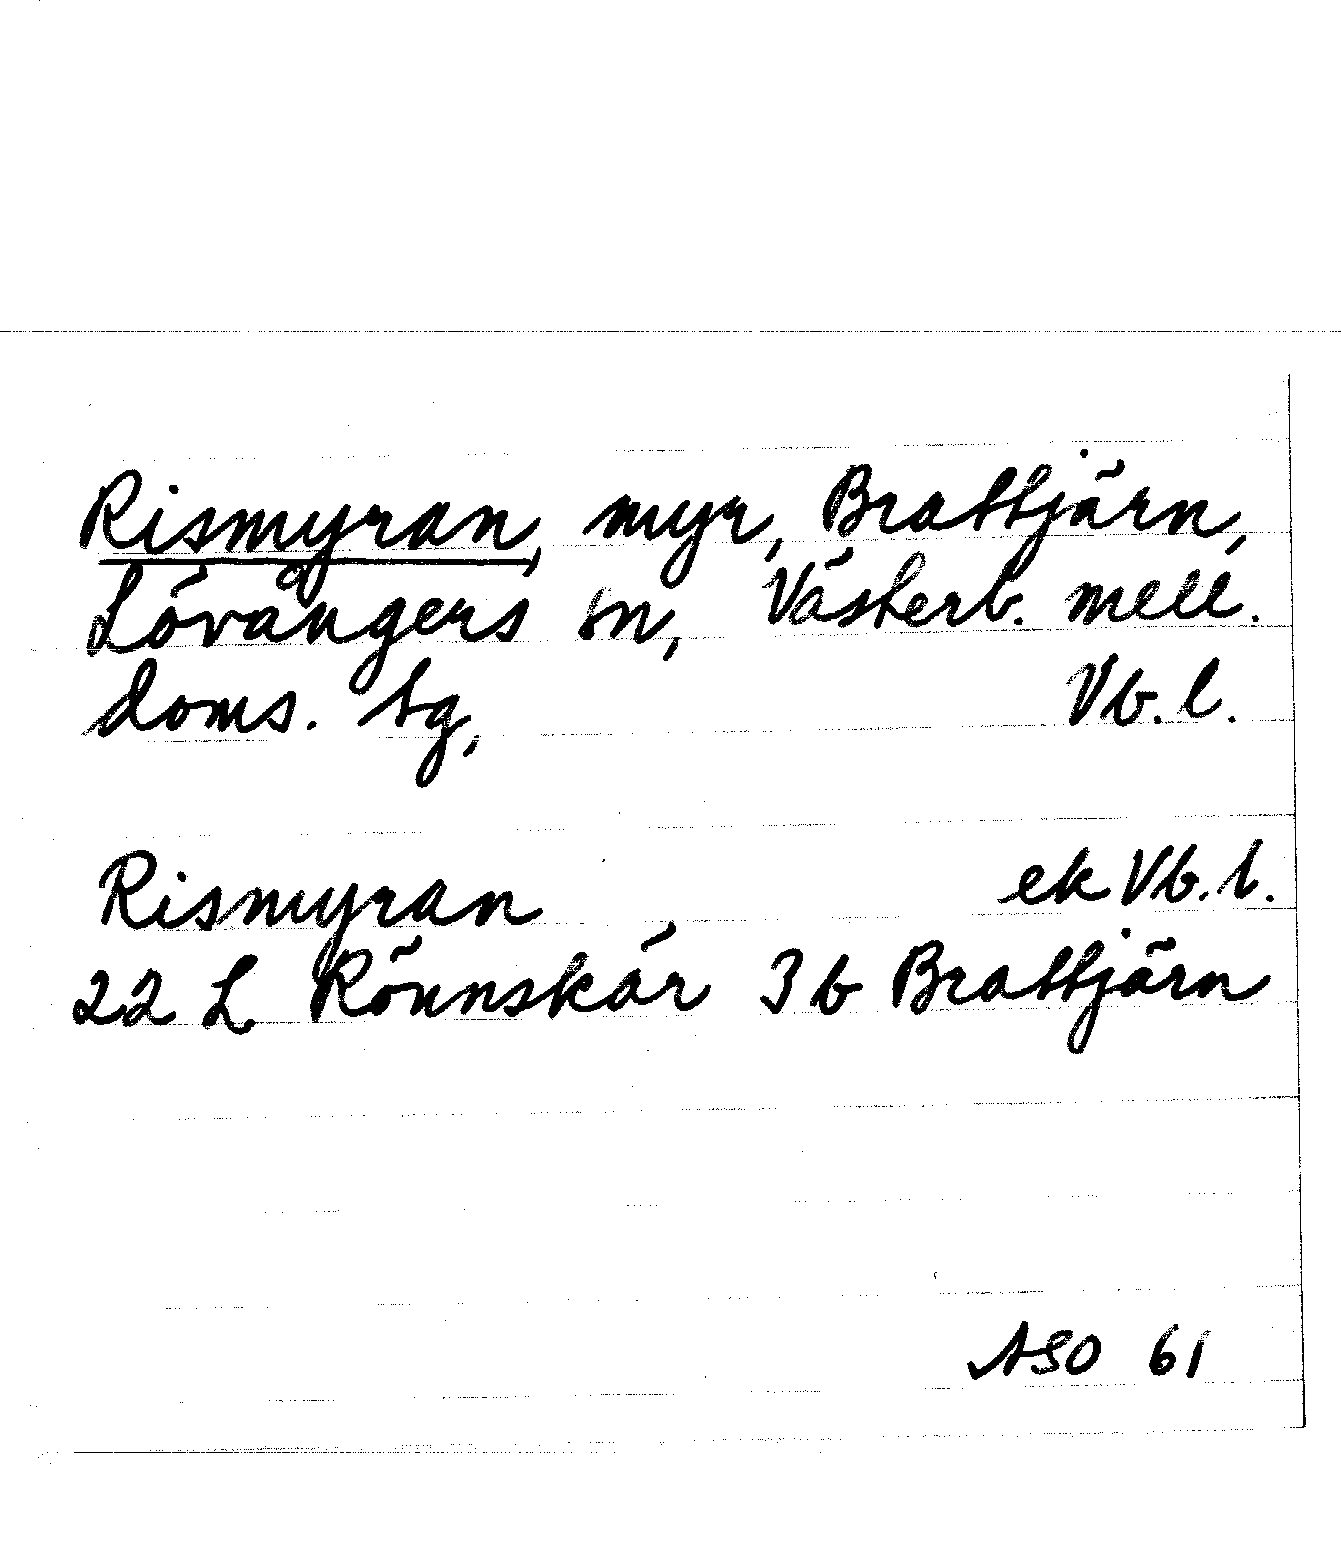 Rismyran, myr, Brattjärn,
Lövångers sn, Västerb. mell.
doms. sg, Vb. l.
Rismyran ek Vb. l.
22 L Rönnskär 3 b Brattjärn
ASO 61